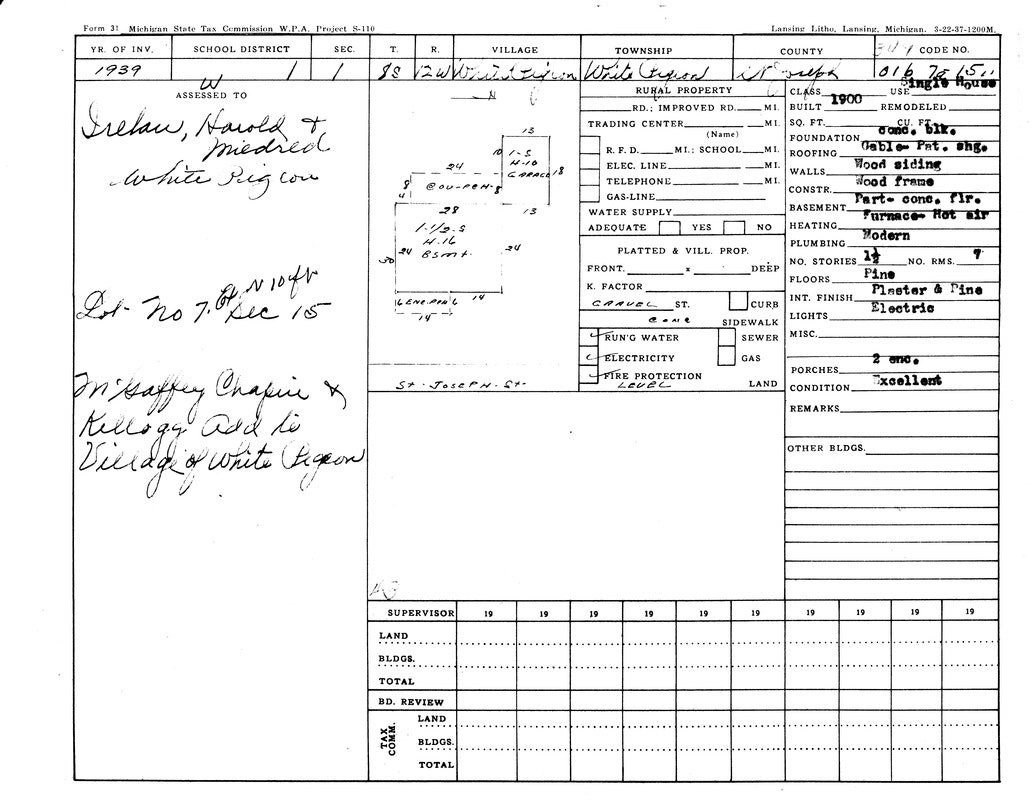 Form 31 Michigan State Tax Commission W.P.A. Project S-110
Lansing Litho, Lansing, Michigan. 3-22-37-1200M.
YR. OF INV. SCHOOL DISTRICT SEC. T. R. VILLAGE TOWNSHIP COUNTY CODE NO.
1939 1 1 8S 12W White Pigeon White Pigeon St Joseph 016
W
ASSESSED TO
Irelan, Harold &
Mildred
White Pigeon
Lot No 7. N 10 ft
Sec 15
McGaffey Chapin &
Kellogg Add to
Village of White Pigeon
N
13
10 1-S
H-10
GARAGE 18
24
8
4
28
13
1-1/2-S
H-16
BSMT.
24
24
30
14
14
ST. JOSEPH ST.
RURAL PROPERTY
RD.; IMPROVED RD. MI.
TRADING CENTER MI.
(Name)
R. F. D. MI.; SCHOOL MI.
ELEC. LINE MI.
TELEPHONE MI.
GAS-LINE
WATER SUPPLY
ADEQUATE YES NO
PLATTED & VILL. PROP.
FRONT. x DEEP
K. FACTOR
GRAVEL ST. CURB
CONC SIDEWALK
RUN'G WATER SEWER
ELECTRICITY GAS
FIRE PROTECTION
LEVEL LAND
CLASS USE Single House
BUILT 1900 REMODELED
SQ. FT. CU. FT.
FOUNDATION conc. blk.
ROOFING Gable- Pat. shg.
WALLS Wood siding
CONSTR. Wood frame
BASEMENT Part- conc. flr.
HEATING Furnace- Hot air
PLUMBING Modern
NO. STORIES 1½ NO. RMS. 7
FLOORS Pine
INT. FINISH Plaster & Pine
LIGHTS Electric
MISC.
PORCHES 2 enc.
CONDITION Excellent
REMARKS
OTHER BLDGS.
SUPERVISOR 19 19 19 19 19 19 19 19 19 19
LAND
BLDGS.
TOTAL
BD. REVIEW
TAX COMM.
LAND
BLDGS.
TOTAL